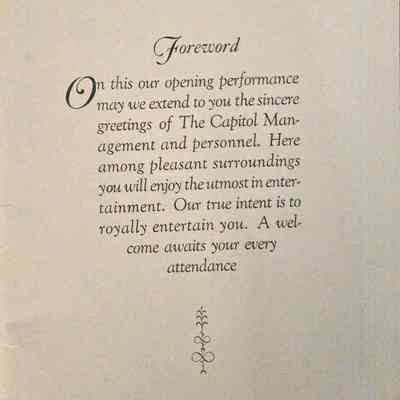 Foreword
On this our opening performance
may we extend to you the sincere
greetings of The Capitol Man-
agement and personnel. Here
among pleasant surroundings
you will enjoy the utmost in enter-
tainment. Our true intent is to
royally entertain you. A wel-
come awaits your every
attendance